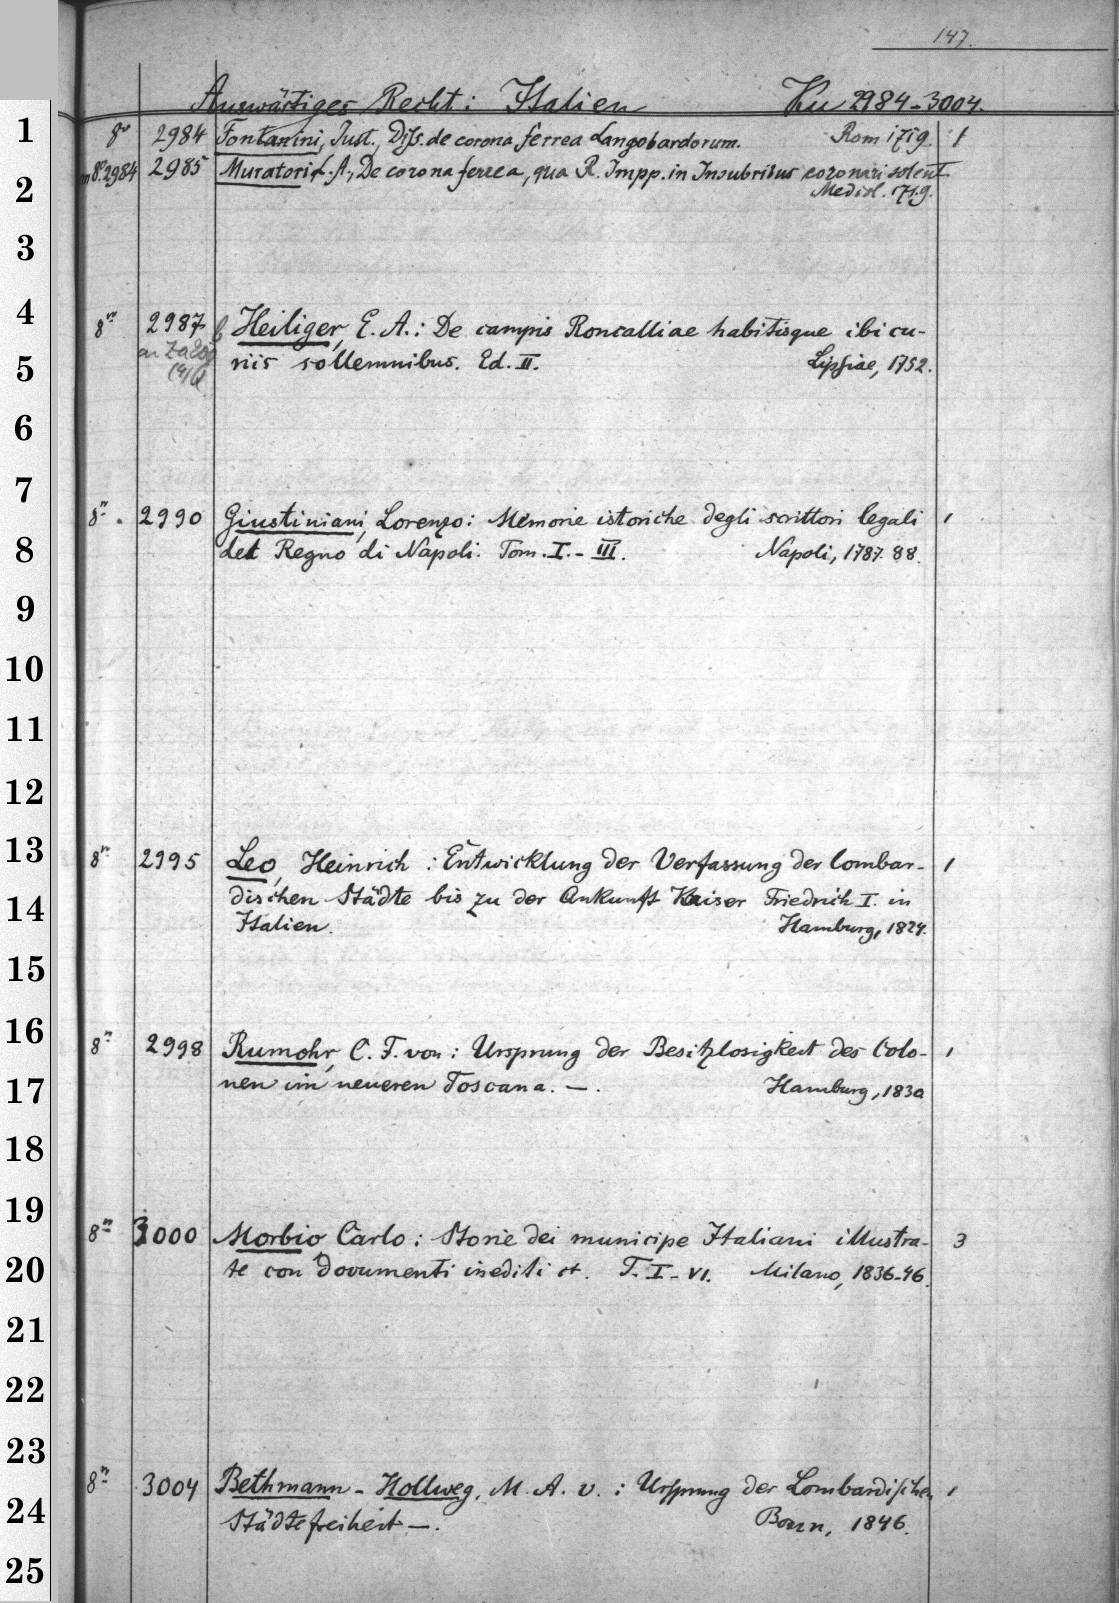 147.
Auswärtiges Recht: Italien Ku 2984-3004.
8º 2984 Fontanini, Just., Diss. de corona ferrea Langobardorum. Rom 1719. 1
an 8º 2984 2985 Muratori L. A., De corona ferrea, qua R. Impp. in Insubribus coronari solent
Mediol. 1719.
8º 2987 Heiliger, E. A.: De campis Roncalliae habitisque ibi cu-
an riis sollemnibus. Ed. II. Lipsiae, 1752.
8º 2990 Giustiniani, Lorenzo: Memorie istoriche degli scrittori legali 1
del Regno di Napoli. Tom. I.-III. Napoli, 1787. 88.
8º 2995 Leo, Heinrich: Entwicklung der Verfassung der lombar- 1
dischen Städte bis zu der Ankunft Kaiser Friedrich I. in
Italien. Hamburg, 1824.
8º 2998 Rumohr, C. F. von: Ursprung der Besitzlosigkeit des Colo- 1
nen im neueren Toscana. —. Hamburg, 1830
8º 3000 Morbio Carlo: Storie dei municipe Italiani illustra- 3
te con Documenti inediti et. T. I-VI. Milano, 1836-46.
8º 3004 Bethmann-Hollweg, M. A. v.: Ursprung der Lombardischen 1
Städtefreiheit —. Bonn, 1846.
1
2
3
4
5
6
7
8
9
10
11
12
13
14
15
16
17
18
19
20
21
22
23
24
25